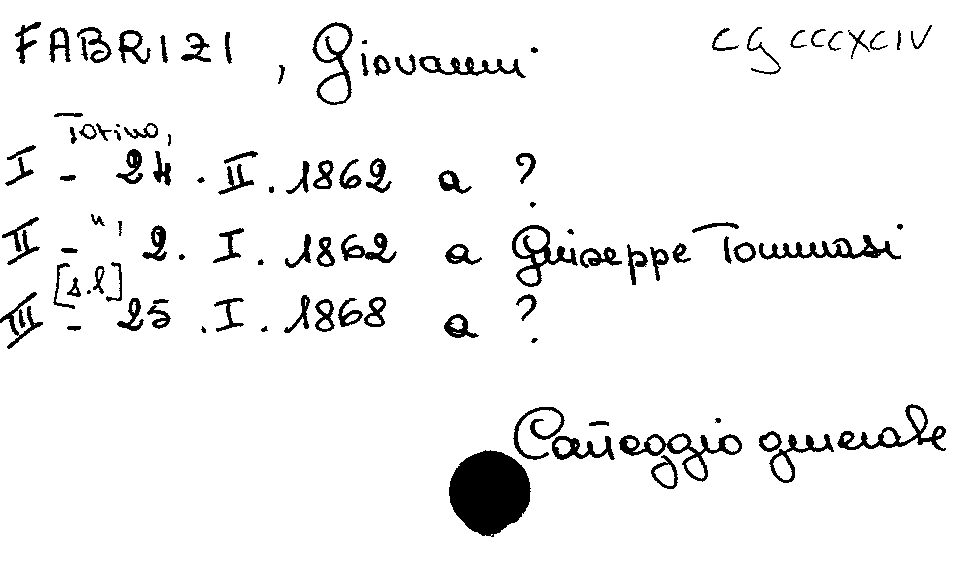 FABRIZI, Giovanni CG CCCXCIV
Torino,
I - 24. II. 1862 a ?
II - ", 2. I. 1862 a Giuseppe Tommasi
[s.l]
III - 25. I. 1868 a ?
Carteggio generale